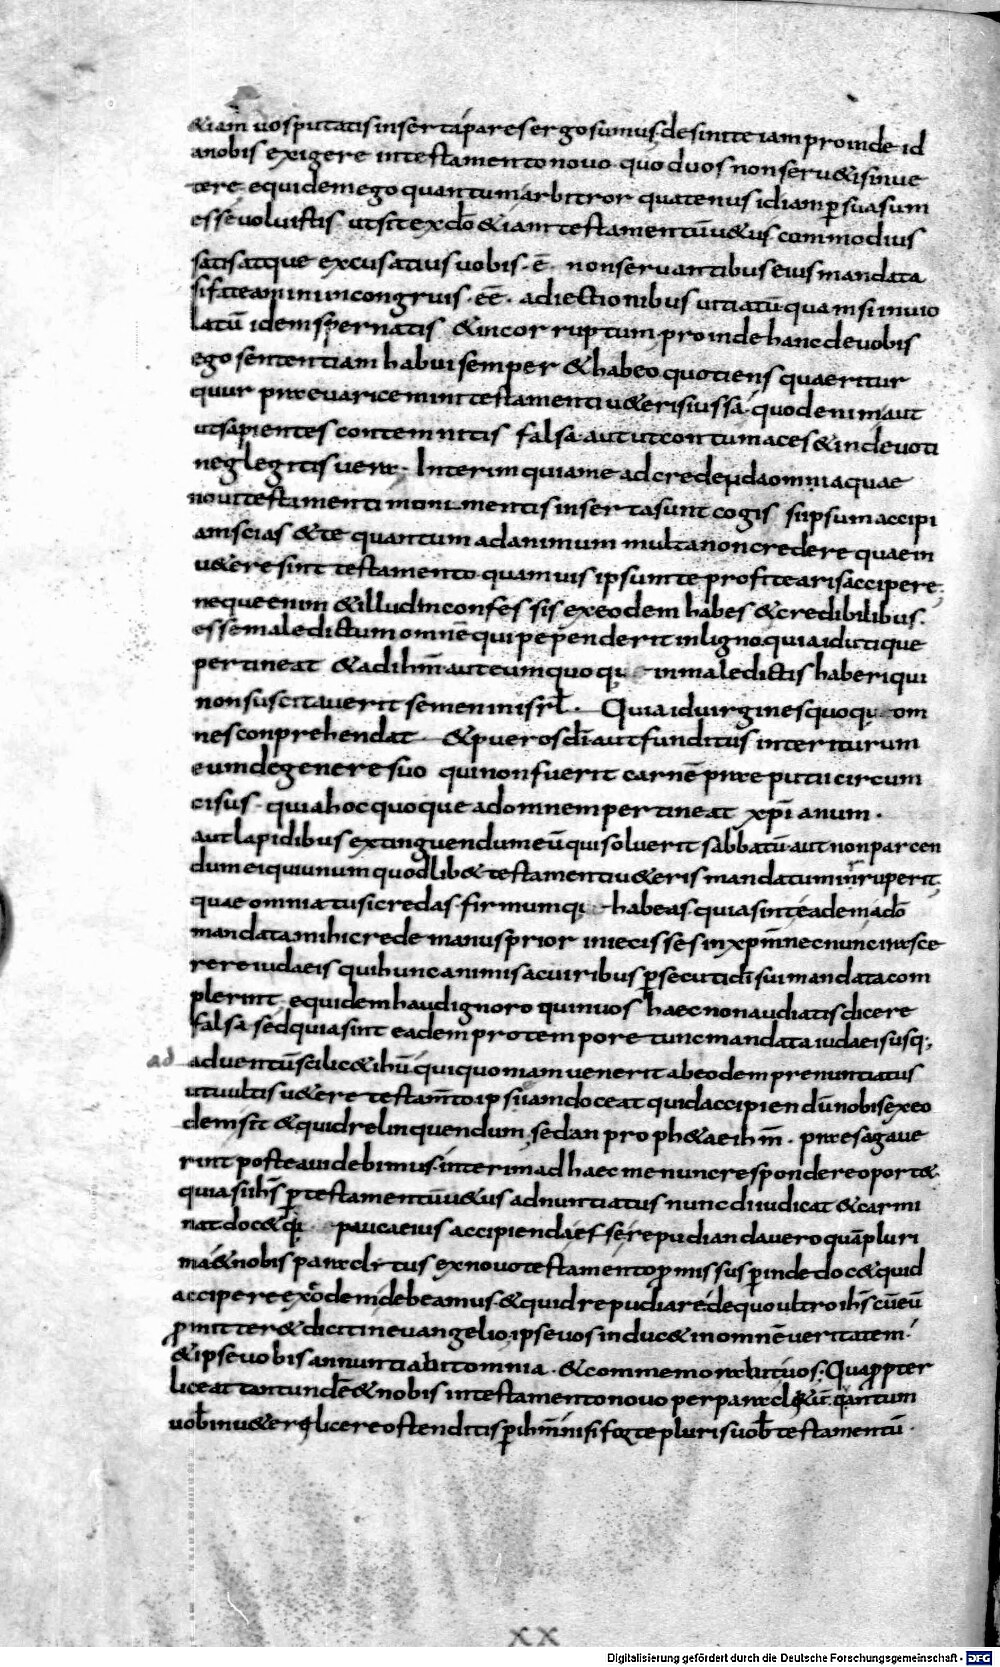 &iam uos putatis inserta pares ergo sumus desinite iam proinde id
anobis exigere intestamento nouo quod uos non seru&is inue
tere equidem ego quantum arbitror quatenus id iam p̱suasum
esse uoluistis ut sit ex dō &iam testamentū u&us commodius
satis atque excusatius uobis ē non seruantibus eius mandata
si fateamini incongruis eē adiectionibus uitiatū quam si inuio
latū idem spernatis &incorruptum proinde hanc deuobis
ego sententiam habui semper &habeo quotiens quaeritur
quur praeuaricemini testamenti u&eris iussa quod enim aut
ut sapientes contemnitis falsa aut ut contumaces &indeuoti
neglegitis uera Interim quia me ad credenda omnia quae
noui testamenti monumentis inserta sunt cogis si ipsum accipi
am scias &te quantum ad animum multa non credere quae in
u&ere sint testamento quamuis ipsum te profitearis accipere
neque enim &illud inconfessis ex eodem habes &credibilibus
esse maledictum omnē qui pependerit inligno quia id utique
pertineat &ad ihm̄ aut eum quoque in maledictis haberi qui
non suscitauerit semen in isrl̄ Quia id uirgines quoque om
nes conprehendat &pueros dī aut funditus interiturum
eum degenere suo qui non fuerit carnē praeputii circum
cisus quia hoc quoque ad omnem pertineat xpīanum
aut lapidibus extinguendum eū qui soluerit sabbatū aut non parcen
dum ei qui unum quodlib& testamenti u&eris mandatum inruperit
quae omnia tu si credas firmumq; habeas quia sint eadem a dō
mandata mihi crede manus prior iniecisses in xpm̄ nec nunc irasce
rere iudaeis qui hunc animis ac uiribus p̱secuti dī sui mandata com
plerint equidem haud ignoro quin uos haec non audiatis dicere
falsa sed quia sint eadem pro tempore tunc mandata iudaeis usq;
ad
aduentū scilic& ihū qui quoniam uenerit ab eodem prenuntiatus
ut uultis u&ere testam̄to ipsū iam doceat quid accipiendū nobis ex eo
dem sit &quid relinquendum sed an proph&ae ihm̄ praesagaue
rint postea uidebimus interim ad haec me nunc respondere oport&
quia si ihs̄ p̱ testamentū u&us adnuntiatus nunc diiudicat &carmi
nat doc&q; pauca eius accipienda esse repudianda uero quāpluri
ma &nobis paraclitus ex nouo testamento p̱missus p̱inde doc& quid
accipere ex eodem debeamus &quid repudiare de quo ultro ihs̄ cū eū
p̱mitter& dicit in euangelio ipse uos induc& in omnē ueritatem
&ipse uobis annuntiabit omnia &commemorabit uos Quap̱pter
liceat tantundē &nobis in testamento nouo per paraclitū quantum
uob̄ in u&ere licere ostenditis p̱ ihm̄ nisi forte pluris uob̄ testamentū
XX
Digitalisierung gefördert durch die Deutsche Forschungsgemeinschaft - DFG